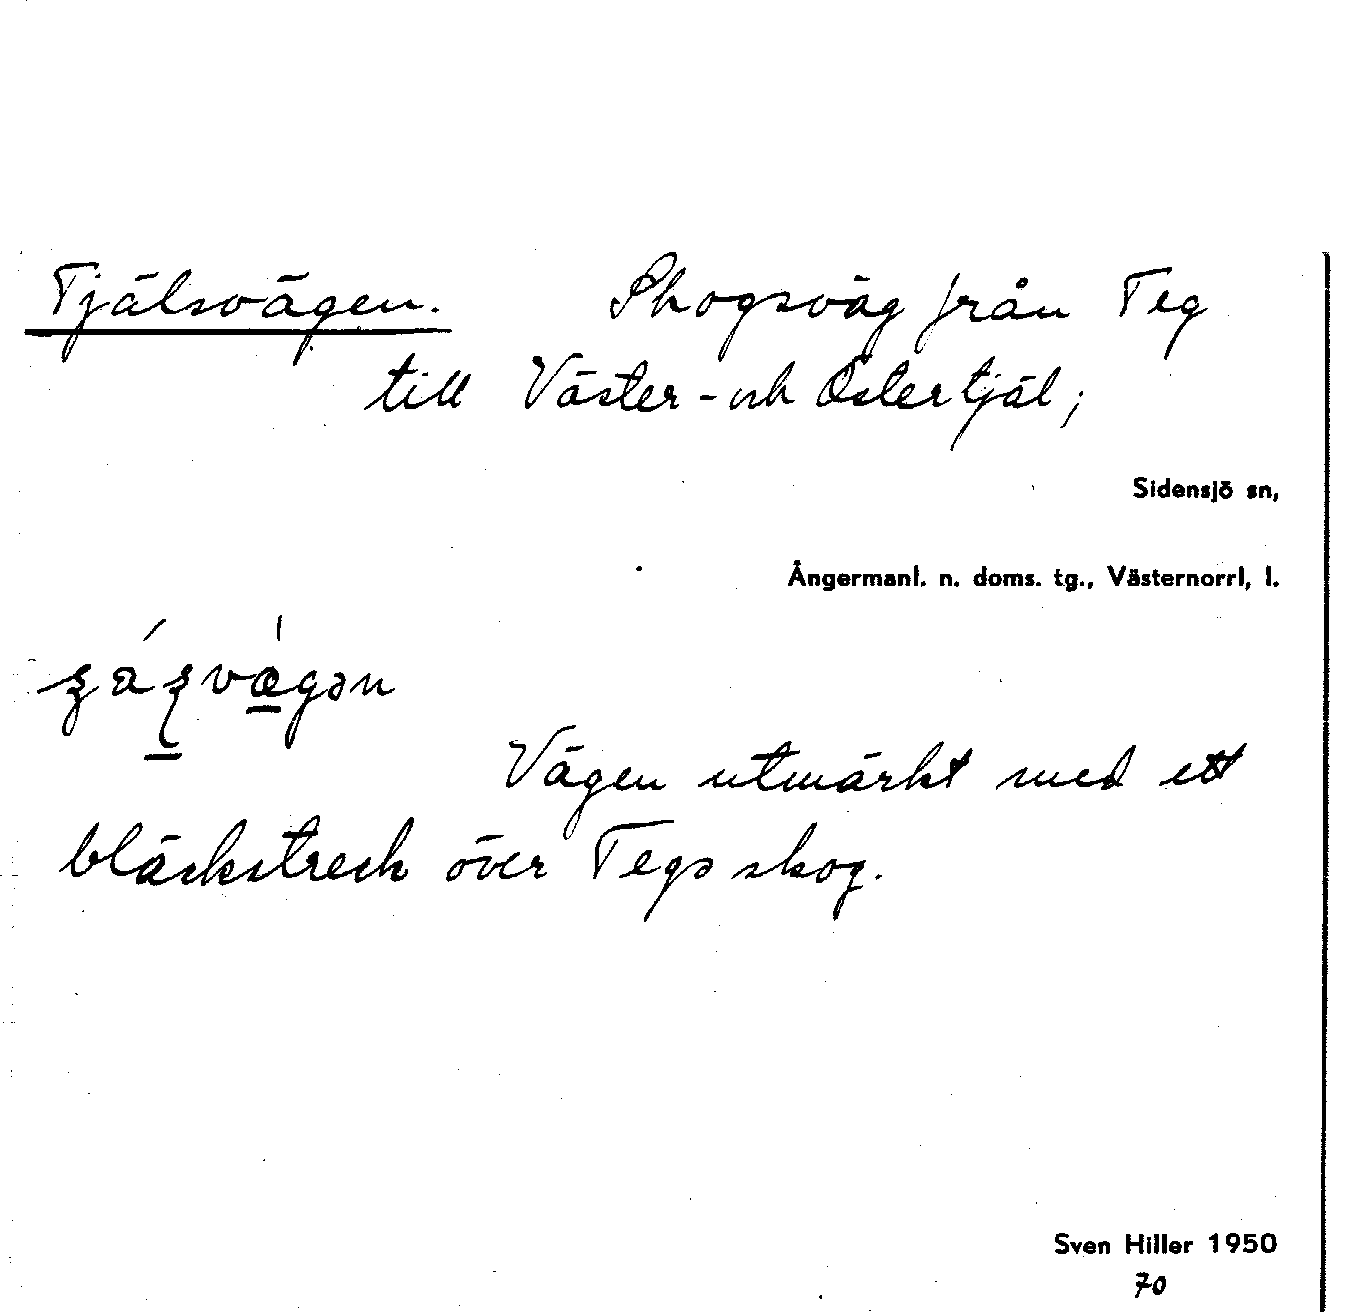 Tjälsvägen. Skogsväg från Teg
till Väster- och Östertjäl;
Sidensjö sn,
Ångermanl. n. doms. tg., Västernorrl. l.
Vägen utmärkt med ett
bläckstreck över Tegs skog.
Sven Hiller 1950
70